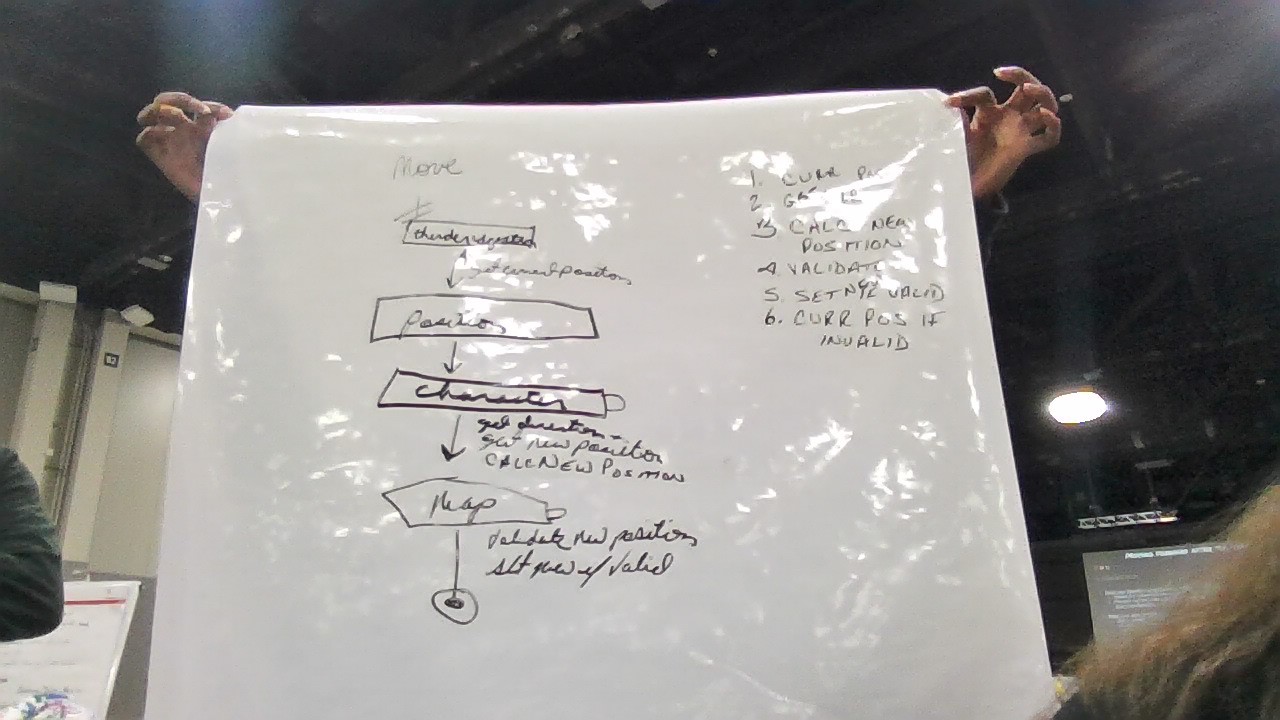 Move
get current position
Position
Character
get direction -
get new position
CALC NEW POSITION
Map
Validate new position
set new if valid
1. CURR
2.
3 CALC NEW
POSITION
4. VALIDATE
5. SET VALID
6. CURR POS IF
INVALID